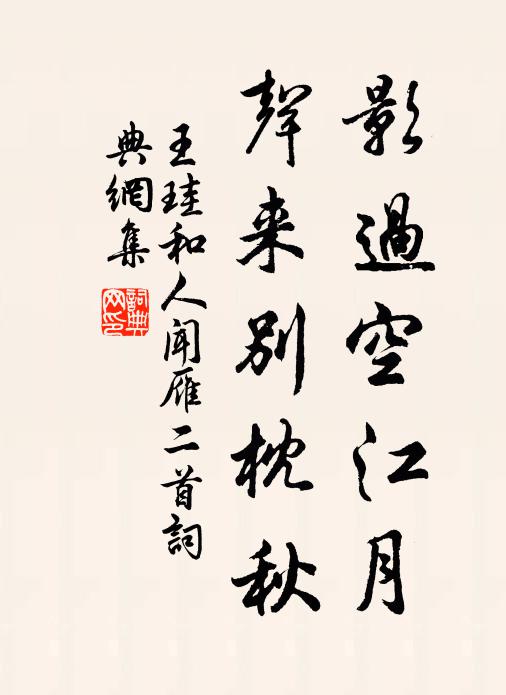 影過空江月
聲来別枕秋
王珪和人聞雁二首詞
典網集
詞典
网印